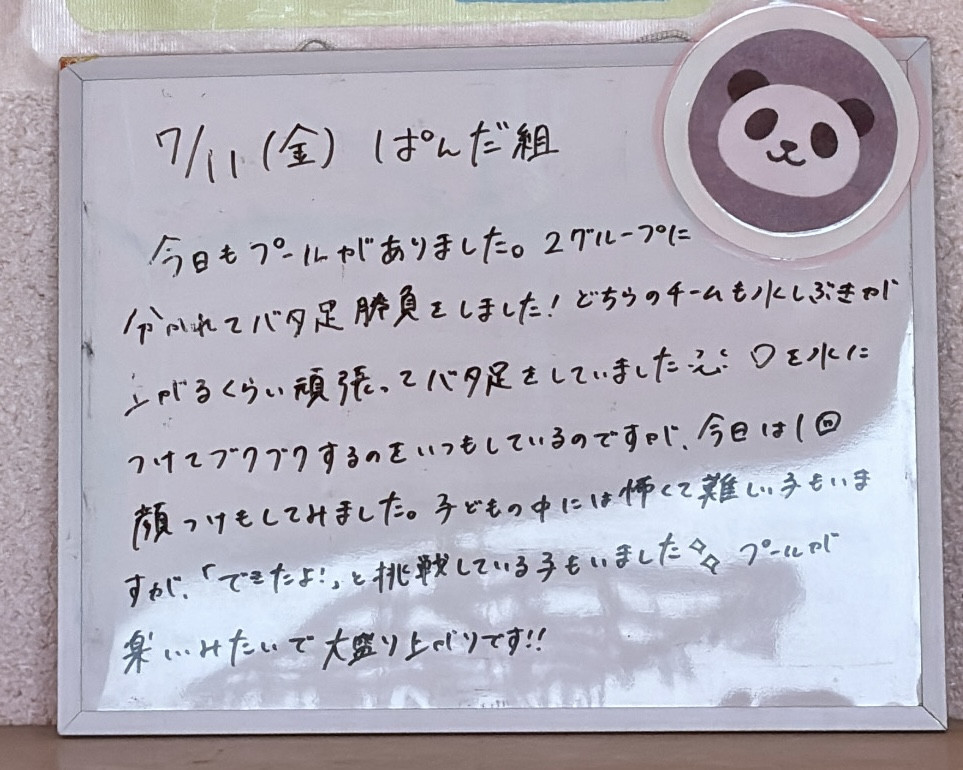 7/11(金) ぱんだ組
今日もプールがありました。2グループに
分かれてバタ足勝負をしました!どちらのチームも水しぶきが
上がるくらい頑張ってバタ足をしていました 口を水に
つけてブクブクするのをいつもしているのですが、今日は1回
顔つけもしてみました。子どもの中には怖くて難しい子もいま
すが、「できたよ!」と挑戦している子もいました プールが
楽しいみたいで大盛り上がりです!!